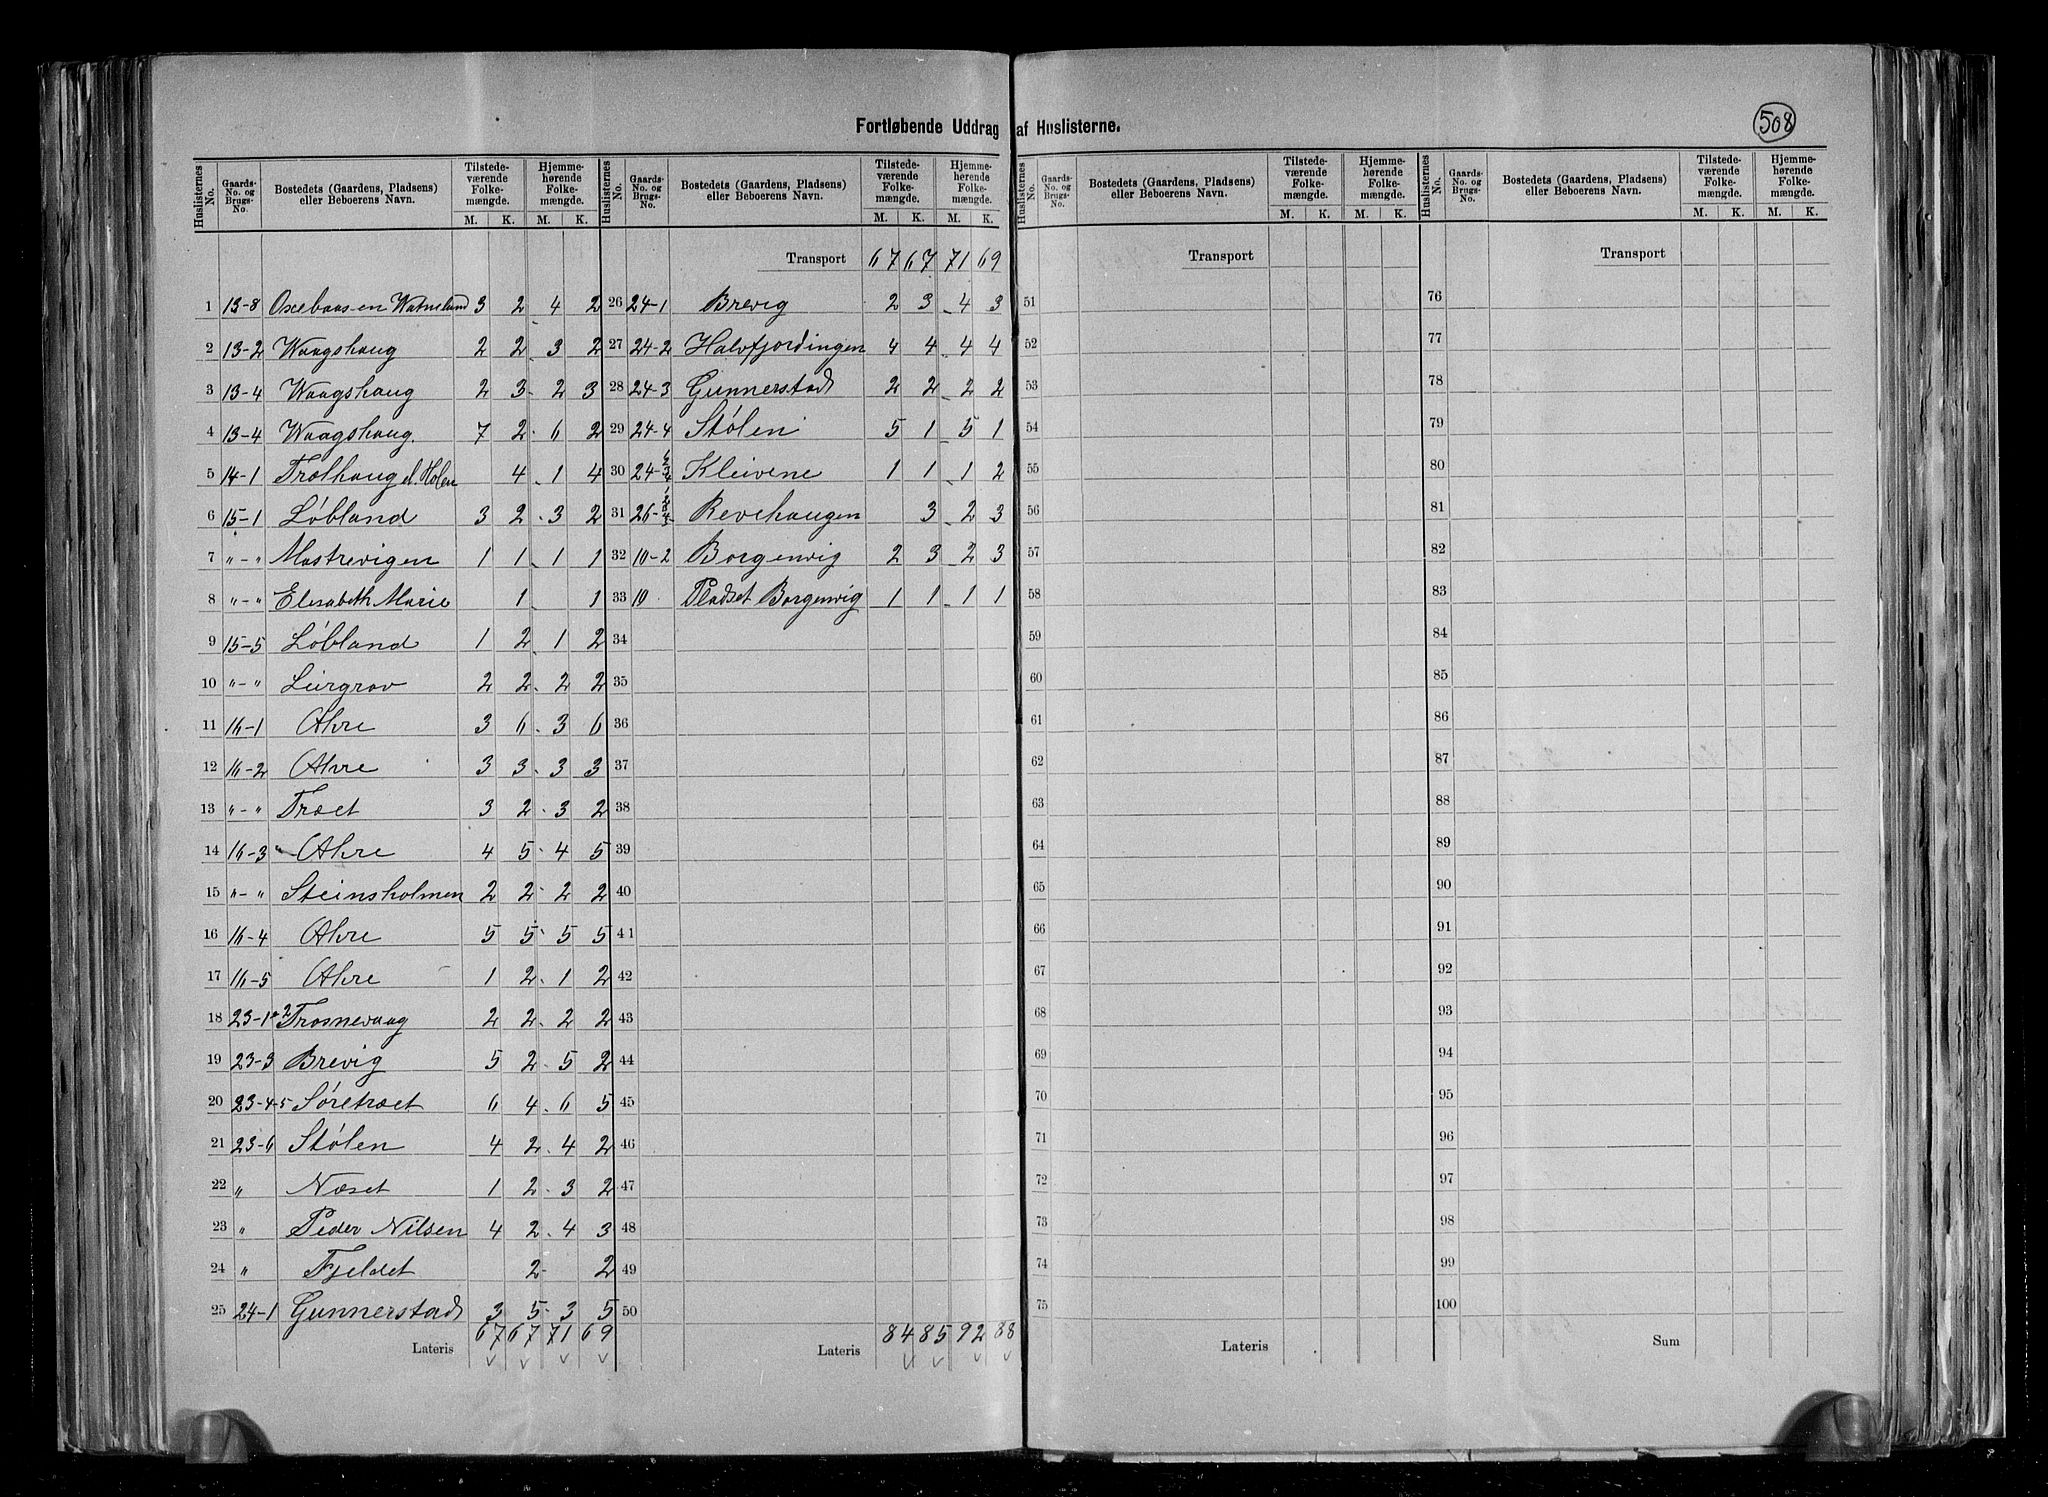 Fortløbende Uddrag af Huslisterne.
508
Huslisternes No. | Gaards-No. og Brugs-No. | Bostedets (Gaardens, Pladsens) eller Beboerens Navn. | Tilstedeværende Folkemængde. M. K. | Hjemmehørende Folkemængde. M. K.
1 13-8 Oxebaasen Watneland 3 2 4 2
2 13-2 Waagshaug 2 2 3 2
3 13-4 Waagshaug 2 3 2 3
4 13-4 Waagshaug. 7 2 6 2
5 14-1 Trolhaug el. Holen 4 1 4
6 15-1 Løbland 3 2 3 2
7 "-" Mostrevigen 1 1 1 1
8 "-" Elisabeth Marie 1 1
9 15-5 Løbland 1 2 1 2
10 "-" Leirgrov 2 2 2 2
11 16-1 Ahre 3 6 3 6
12 16-2 Ahre 3 3 3 3
13 "-" Træet 3 2 3 2
14 16-3 Ahre 4 5 4 5
15 "-" Steinsholmen 2 2 2 2
16 16-4 Ahre 5 5 5 5
17 16-5 Ahre 1 2 1 2
18 23-1*2 Trosnevaag 2 2 2 2
19 23-3 Brevig 5 2 5 2
20 23-4-5 Søretræet 6 4 6 5
21 23-6 Stølen 4 2 4 2
22 " Næset 1 2 3 2
23 " Peder Nilsen 4 2 4 3
24 " Fjeldet 2 2
25 24-1 Gunnerstad 3 5 3 5
Lateris 67 67 71 69
Huslisternes No. | Gaards-No. og Brugs-No. | Bostedets (Gaardens, Pladsens) eller Beboerens Navn. | Tilstedeværende Folkemængde. M. K. | Hjemmehørende Folkemængde. M. K.
Transport 67 67 71 69
26 24-1 Brevig 2 3 4 3
27 24-2 Halvfjordingen 4 4 4 4
28 24-3 Gunnerstad 2 2 2 2
29 24-4 Stølen 5 1 5 1
30 24- Kleivene 1 1 1 2
31 26- Revehaugen 3 2 3
32 10-2 Borgenvig 2 3 2 3
33 10 Pladset Borgenvig 1 1 1 1
34
35
36
37
38
39
40
41
42
43
44
45
46
47
48
49
50
Lateris 84 85 92 88
Huslisternes No. | Gaards-No. og Brugs-No. | Bostedets (Gaardens, Pladsens) eller Beboerens Navn. | Tilstedeværende Folkemængde. M. K. | Hjemmehørende Folkemængde. M. K.
Transport
51
52
53
54
55
56
57
58
59
60
61
62
63
64
65
66
67
68
69
70
71
72
73
74
75
Lateris
Huslisternes No. | Gaards-No. og Brugs-No. | Bostedets (Gaardens, Pladsens) eller Beboerens Navn. | Tilstedeværende Folkemængde. M. K. | Hjemmehørende Folkemængde. M. K.
Transport
76
77
78
79
80
81
82
83
84
85
86
87
88
89
90
91
92
93
94
95
96
97
98
99
100
Sum